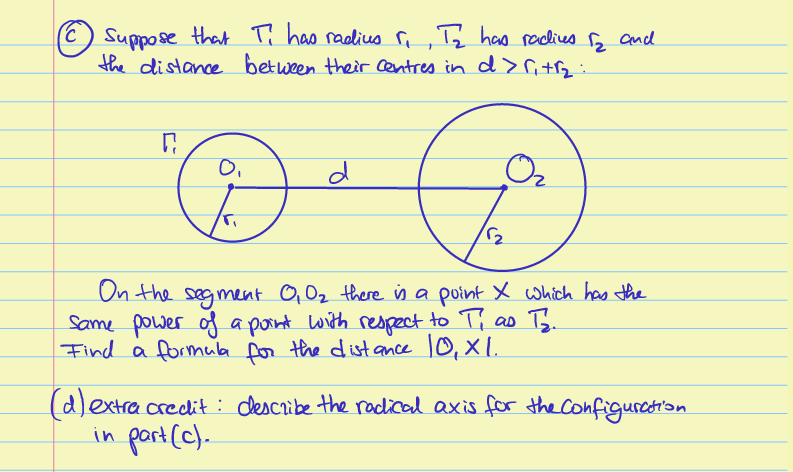 (c) Suppose that Γ₁ has radius r₁, Γ₂ has radius r₂ and
the distance between their centres in d > r₁+r₂ :
Γ₁
O₁
d
O₂
r₁
r₂
On the segment O₁O₂ there is a point X which has the
same power of a point with respect to Γ₁ as Γ₂.
Find a formula for the distance |O₁X|.
(d) extra credit : describe the radical axis for the configuration
in part (c).